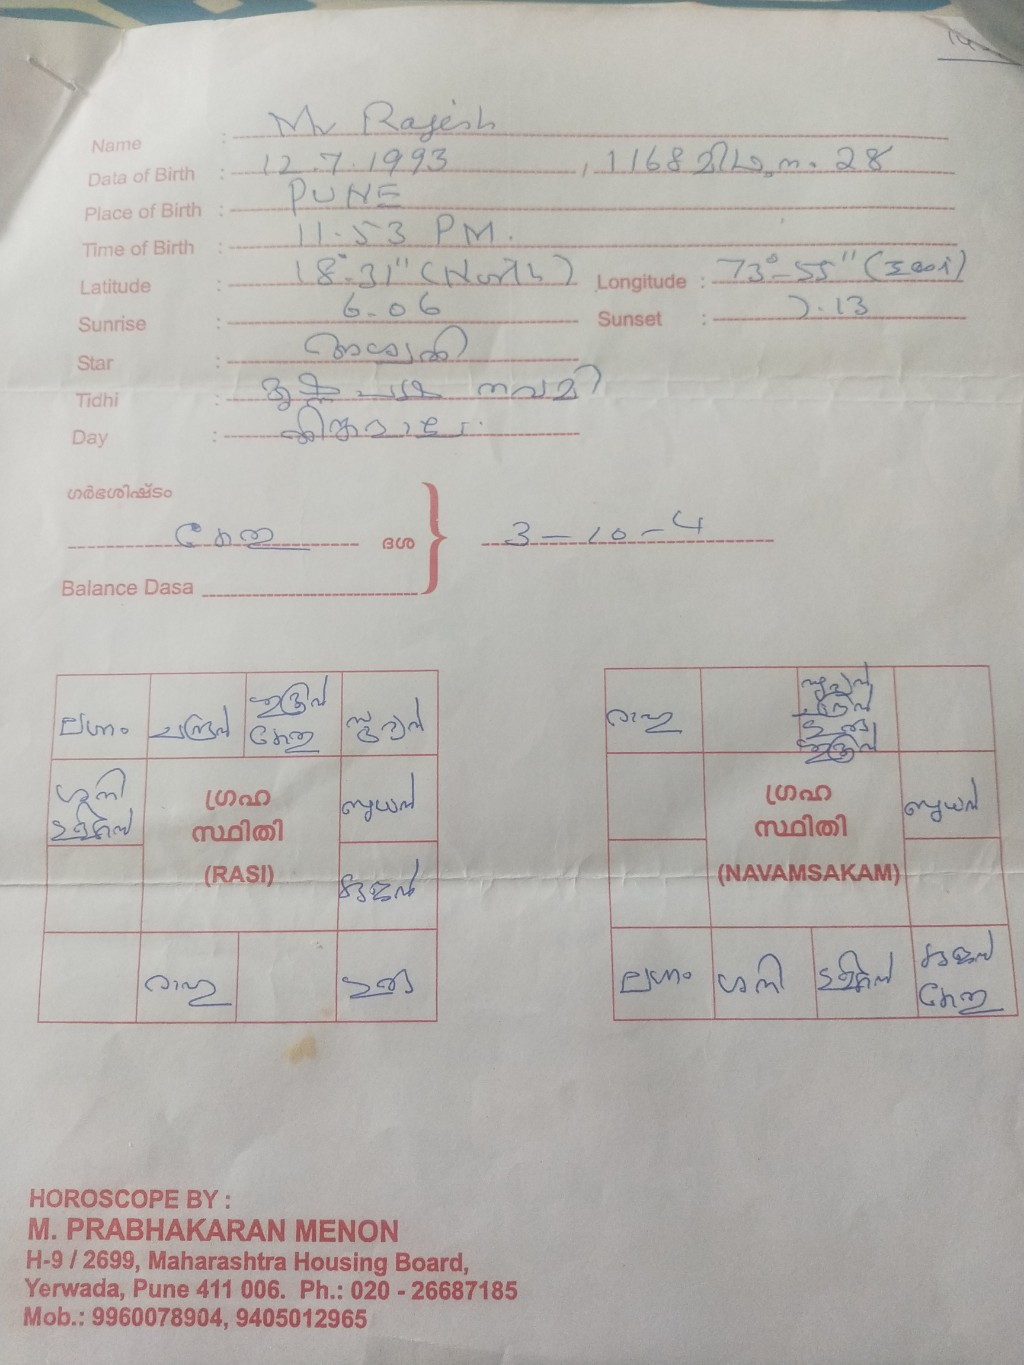 Name : Mr Rajesh
Data of Birth : 12.7.1993 , 1168 മിഥുനം 28
Place of Birth : PUNE
Time of Birth : 11.53 PM.
Latitude : 18°-31" (North) Longitude : 73°-55" (East)
Sunrise : 6.06 Sunset : 7.13
Star : അശ്വതി
Tidhi : കൃഷ്ണപക്ഷ നവമി
Day : തിങ്കളാഴ്ച
ഗർഭശിഷ്ടം
കേതു ദശ 3-10-4
Balance Dasa
ലഗ്നം ചന്ദ്രൻ ശുക്രൻ കേതു സൂര്യൻ
ശനി ഗുളികൻ ബുധൻ
ഗ്രഹ
സ്ഥിതി
(RASI)
കുജൻ
രാഹു ഗുരു
രാഹു സൂര്യൻ ചന്ദ്രൻ ഗുരു ശുക്രൻ
ബുധൻ
ഗ്രഹ
സ്ഥിതി
(NAVAMSAKAM)
ലഗ്നം ശനി ഗുളികൻ കുജൻ കേതു
HOROSCOPE BY :
M. PRABHAKARAN MENON
H-9 / 2699, Maharashtra Housing Board,
Yerwada, Pune 411 006. Ph.: 020 - 26687185
Mob.: 9960078904, 9405012965